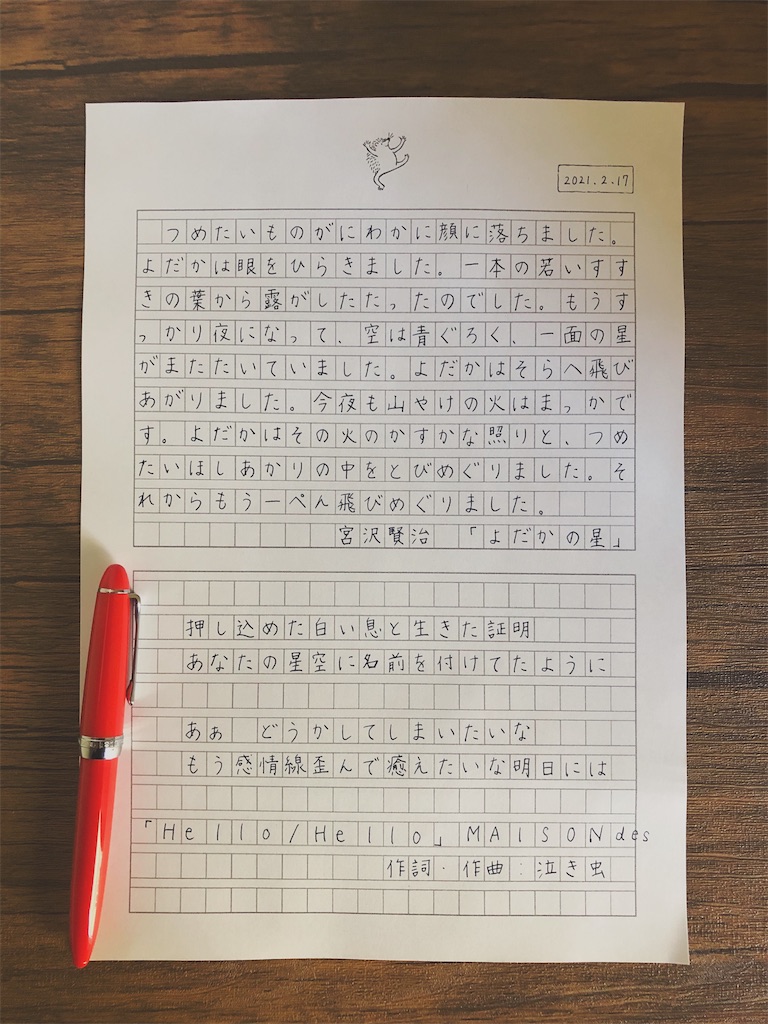 2021.2.17
つめたいものがにわかに顔に落ちました。
よだかは眼をひらきました。一本の若いすす
きの葉から露がしたたったのでした。もうす
っかり夜になって、空は青ぐろく、一面の星
がまたたいていました。よだかはそらへ飛び
あがりました。今夜も山やけの火はまっかで
す。よだかはその火のかすかな照りと、つめ
たいほしあかりの中をとびめぐりました。そ
れからもう一ぺん飛びめぐりました。
宮沢賢治 「よだかの星」
押し込めた白い息と生きた証明
あなたの星空に名前を付けてたように
あぁ どうかしてしまいたいな
もう感情線歪んで癒えたいな明日には
「Hello/Hello」MAISONdes
作詞・作曲:泣き虫